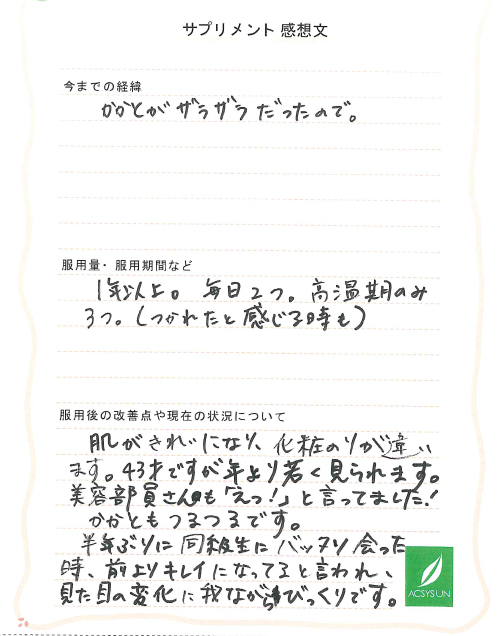 サプリメント 感想文
今までの経緯
かかとがザラザラだったので。
服用量・服用期間など
1年以上。毎日2つ。高温期のみ
3つ。(つかれたと感じる時も)
服用後の改善点や現在の状況について
肌がきれいになり、化粧のりが違い
ます。43才ですが年より若く見られます。
美容部員さんも「えっ!」と言ってました!
かかともつるつるです。
半年ぶりに同級生にバッタリ会った
時、前よりキレイになってると言われ、
見た目の変化に我ながらびっくりです。
ACSYSUN